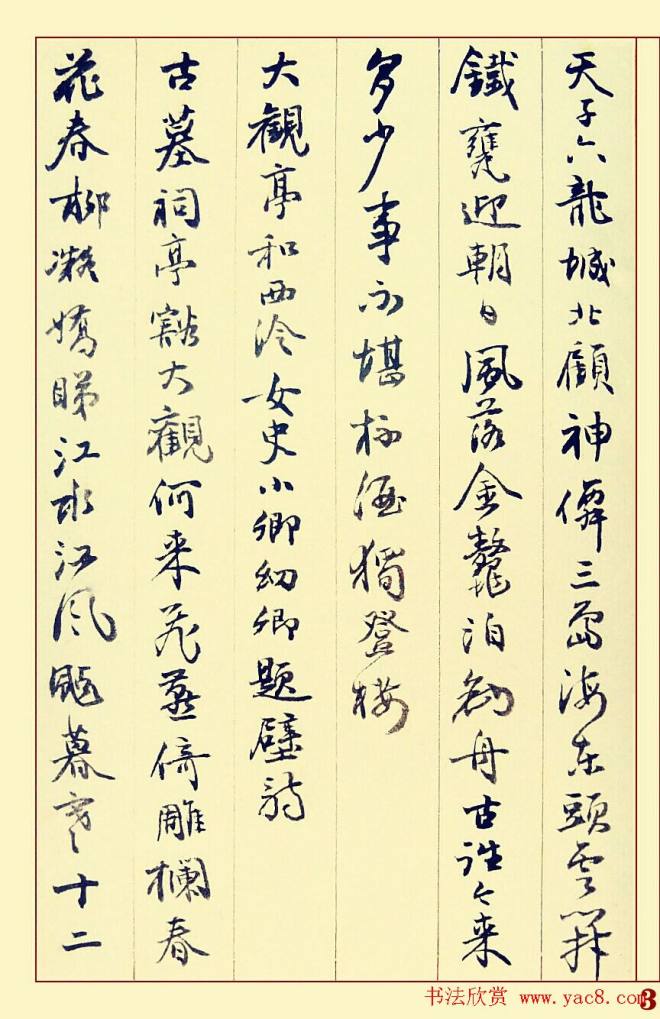 天子六龍城北顧神僊三島海东頭雲開
鐵甕迎朝日風落金鼇泊剡舟古往今来
多少事不堪杯酒獨登樓
大觀亭和西泠女史小卿幼卿题壁詩
古墓祠亭豁大觀何来倚雕欄春
花春柳凝嬌睇江水江风颭暮寒十二
书法欣赏 www.yac8.com
3